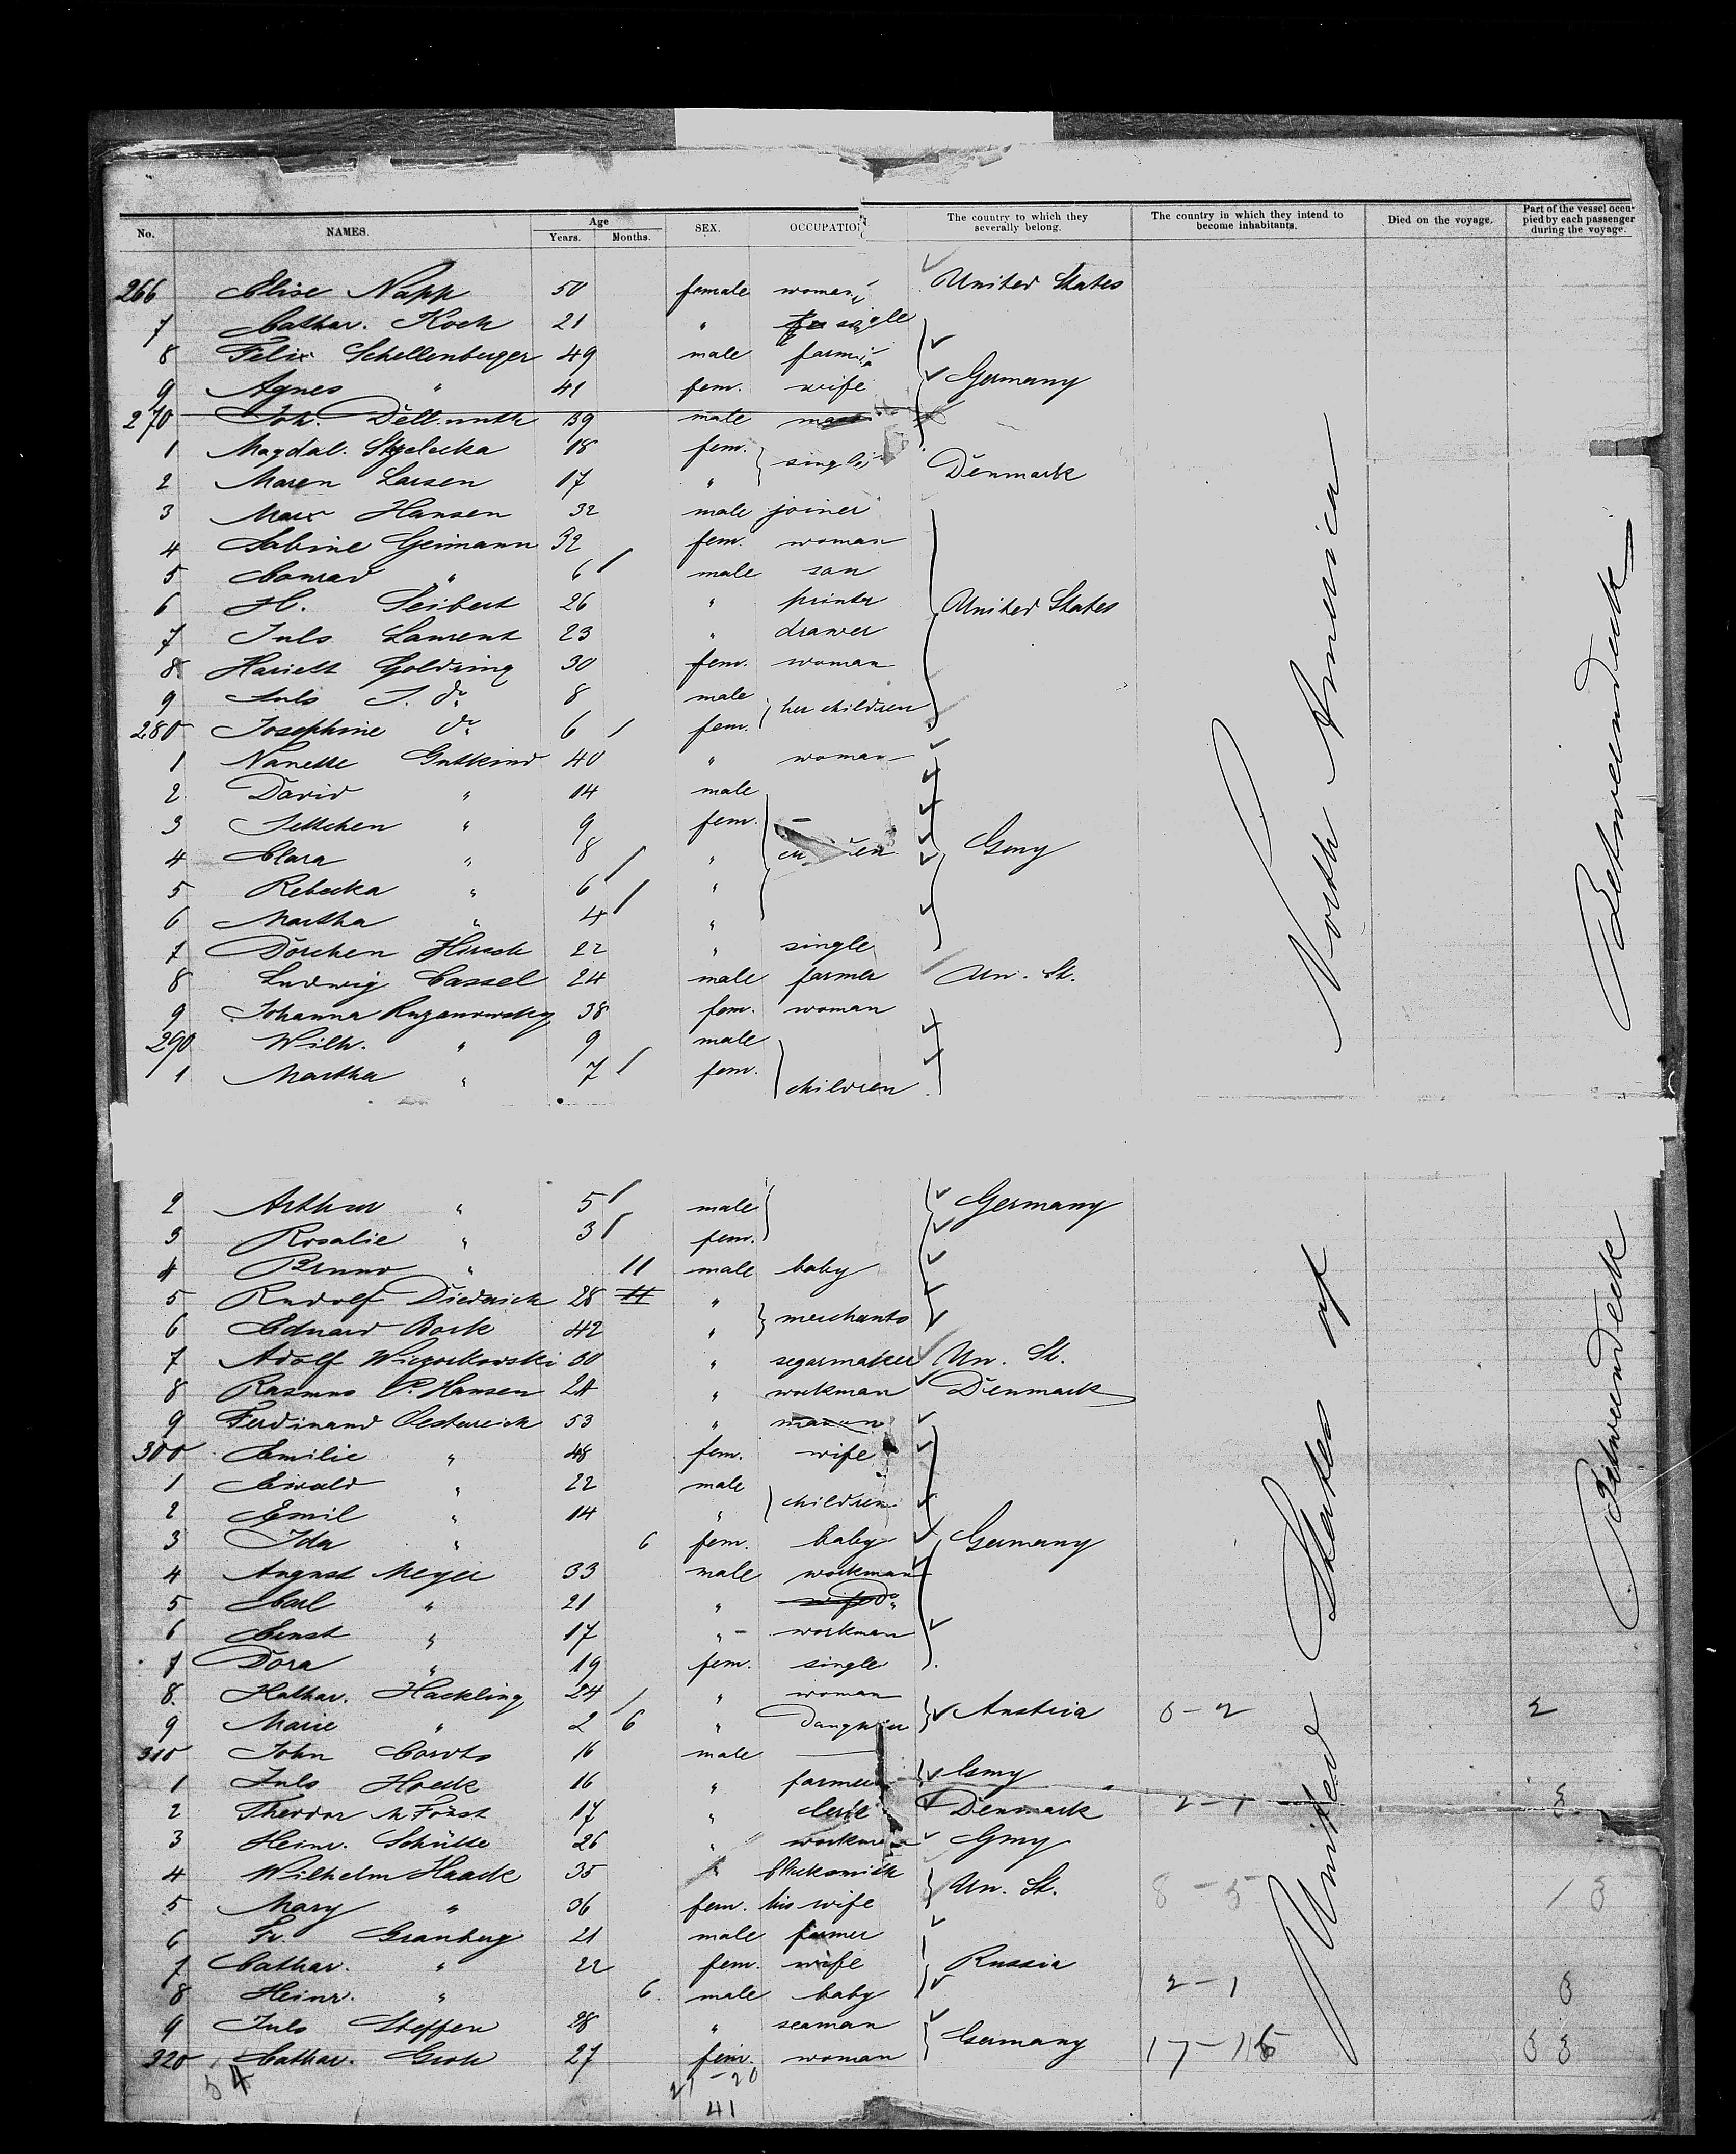 No. NAMES. Age Years. Months. SEX. OCCUPATION The country to which they severally belong. The country in which they intend to become inhabitants. Died on the voyage. Part of the vessel occupied by each passenger during the voyage.
266 Elise Napp 50 female woman United States
7 Cathar. Koch 21 " single
8 Felix Schellenberger 49 male farmer
9 Agnes " 41 fem. wife Germany
270 Joh. 39 male
1 Magdal. 18 fem.
single
2 Maren Larsen 17 " Denmark
3 Marx Hansen 32 male joiner
4 Sabine Geimann 32 fem. woman
5 Conrad " 6 male son
6 H. Seibert 26 " printer United States
7 Juls Laurent 23 " drawer
8 Hariett Goldring 30 fem. woman
9 Juls J. do 8 male
her children
280 Josephine do 6 fem.
1 Nanette Gutkind 40 " woman
2 David " 14 male
3 Jettchen " 9 fem.
4 Clara " 8 " Gmy
5 Rebecka " 6 "
6 Martha " 4 "
7 Dorchen Hirsch 22 " single
8 Ludwig Cassel 24 male farmer Un. St.
9 Johanna 38 fem. woman
290 Wilh. " 9 male
1 Martha " 7 fem.
children
2 Arthur " 5 male Germany
3 Rosalie " 3 fem.
4 Bruno " 11 male baby
5 Rudolf Diedrich 28 11 "
merchants
6 Eduard Bock 42 "
7 Adolf 30 " segarmaker Un. St.
8 Rasmus P. Hansen 24 " workman Denmark
9 Ferdinand Oestereich 53 "
300 Emilie " 48 fem. wife
1 Ewald " 22 male
children
2 Emil " 14 "
3 Ida " 6 fem. baby Germany
4 August Meyer 33 male workman
5 Carl " 21 " do
6 Ernst " 17 " workman
7 Dora " 19 fem. single
8 Kathar. Hackling 24 " woman
9 Marie " 2 6 " daughter Austria 0-2 2
310 John Cordts 16 male —
1 Juls Hoeck 16 " farmer Gmy
2 Theodor 17 " clerk Denmark 2-1 3
3 Heinr. Schütte 26 " workman Gmy
4 Wilhelm Haack 35 " blacksmith
Un. St. 8-5 13
5 Mary " 36 fem. his wife
6 Fr. Granberg 21 male farmer
7 Cathar. " 22 fem. wife Russia
8 Heinr. " 6 male baby 2-1 3
9 Juls Steffen 28 " seaman
Germany 17-16 33
320 Cathar. Groh 27 fem. woman
54 21-20
41
United States of North America
Betweendeck
Betweendeck